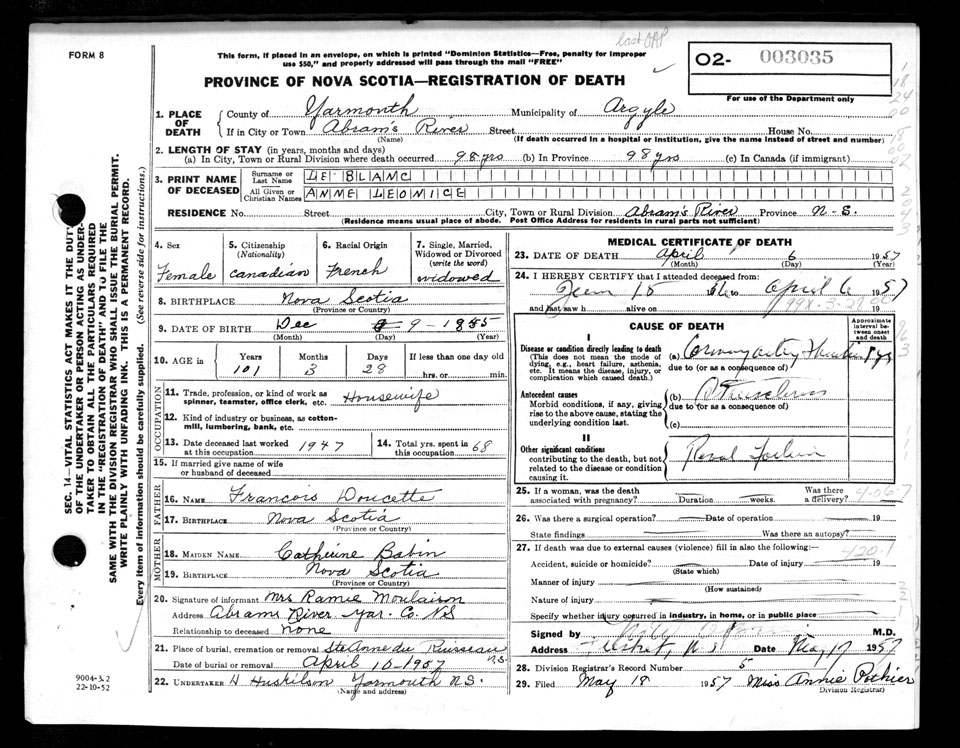 last OAP
FORM 8
This form, if placed in an envelope, on which is printed "Dominion Statistics—Free, penalty for improper
use $50," and properly addressed will pass through the mail "FREE"
PROVINCE OF NOVA SCOTIA—REGISTRATION OF DEATH
02- 003035
For use of the Department only
1. PLACE OF DEATH
County of Yarmouth Municipality of Argyle
If in City or Town Abram's River Street House No.
(Name) (If death occurred in a hospital or institution, give the name instead of street and number)
2. LENGTH OF STAY (in years, months and days)
(a) In City, Town or Rural Division where death occurred 98 yrs (b) In Province 98 yrs (c) In Canada (if immigrant)
3. PRINT NAME OF DECEASED
Surname or Last Name LE BLANC
All Given or Christian Names ANNE LEONICE
RESIDENCE No. Street City, Town or Rural Division Abram's River Province N-S.
(Residence means usual place of abode. Post Office Address for residents in rural parts not sufficient)
4. Sex Female
5. Citizenship (Nationality) Canadian
6. Racial Origin French
7. Single, Married, Widowed or Divorced (write the word) widowed
8. BIRTHPLACE Nova Scotia
(Province or Country)
9. DATE OF BIRTH Dec 9-1855
(Month) (Day) (Year)
10. AGE in Years Months Days If less than one day old
101 3 28 hrs. or min.
OCCUPATION
11. Trade, profession, or kind of work as spinner, teamster, office clerk, etc. Housewife
12. Kind of industry or business, as cotton-mill, lumbering, bank, etc.
13. Date deceased last worked at this occupation 1947
14. Total yrs. spent in this occupation 68
15. If married give name of wife or husband of deceased
FATHER
16. NAME Francois Doucette
17. BIRTHPLACE Nova Scotia
(Province or Country)
MOTHER
18. MAIDEN NAME Catherine Babin
19. BIRTHPLACE Nova Scotia
(Province or Country)
20. Signature of informant Mrs Ramie Moulaison
Address Abrams River Yar. Co. NS
Relationship to deceased none
21. Place of burial, cremation or removal Ste Anne du Ruisseau N.S.
Date of burial or removal April 10-1957
22. UNDERTAKER H Huskilson Yarmouth N.S.
(Name and address)
MEDICAL CERTIFICATE OF DEATH
23. DATE OF DEATH April 6 1957
(Month) (Day) (Year)
24. I HEREBY CERTIFY that I attended deceased from:
15 to April 6 1957
and last saw h alive on 19
CAUSE OF DEATH
Approximate interval between onset and death
I
Disease or condition directly leading to death
(This does not mean the mode of dying, e.g., heart failure, asthenia, etc. It means the disease, injury, or complication which caused death.)
(a) Coronary artery
due to (or as a consequence of)
Antecedent causes
Morbid conditions, if any, giving rise to the above cause, stating the underlying condition last.
(b)
due to (or as a consequence of)
(c)
II
Other significant conditions
contributing to the death, but not related to the disease or condition causing it.
Renal Failure
25. If a woman, was the death associated with pregnancy? Duration weeks. Was there a delivery?
26. Was there a surgical operation? Date of operation 19
State findings Was there an autopsy?
27. If death was due to external causes (violence) fill in also the following:—
420.1
Accident, suicide or homicide? Date of injury 19
(State which)
Manner of injury
(How sustained)
Nature of injury
Specify whether injury occurred in industry, in home, or in public place
Signed by M.D.
Address Tusket, N.S. Date May 17 1957
28. Division Registrar's Record Number 5
29. Filed May 18 1957 Miss Annie Pothier
Division Registrar)
SEC. 14—VITAL STATISTICS ACT MAKES IT THE DUTY
OF THE UNDERTAKER OR PERSON ACTING AS UNDER-
TAKER TO OBTAIN ALL THE PARTICULARS REQUIRED
IN THE "REGISTRATION OF DEATH" AND TO FILE THE
SAME WITH THE DIVISION REGISTRAR WHO SHALL ISSUE THE BURIAL PERMIT.
WRITE PLAINLY WITH UNFADING INK. THIS IS A PERMANENT RECORD.
Every item of information should be carefully supplied. (See reverse side for instructions.)
9004-3.2
22-10-52